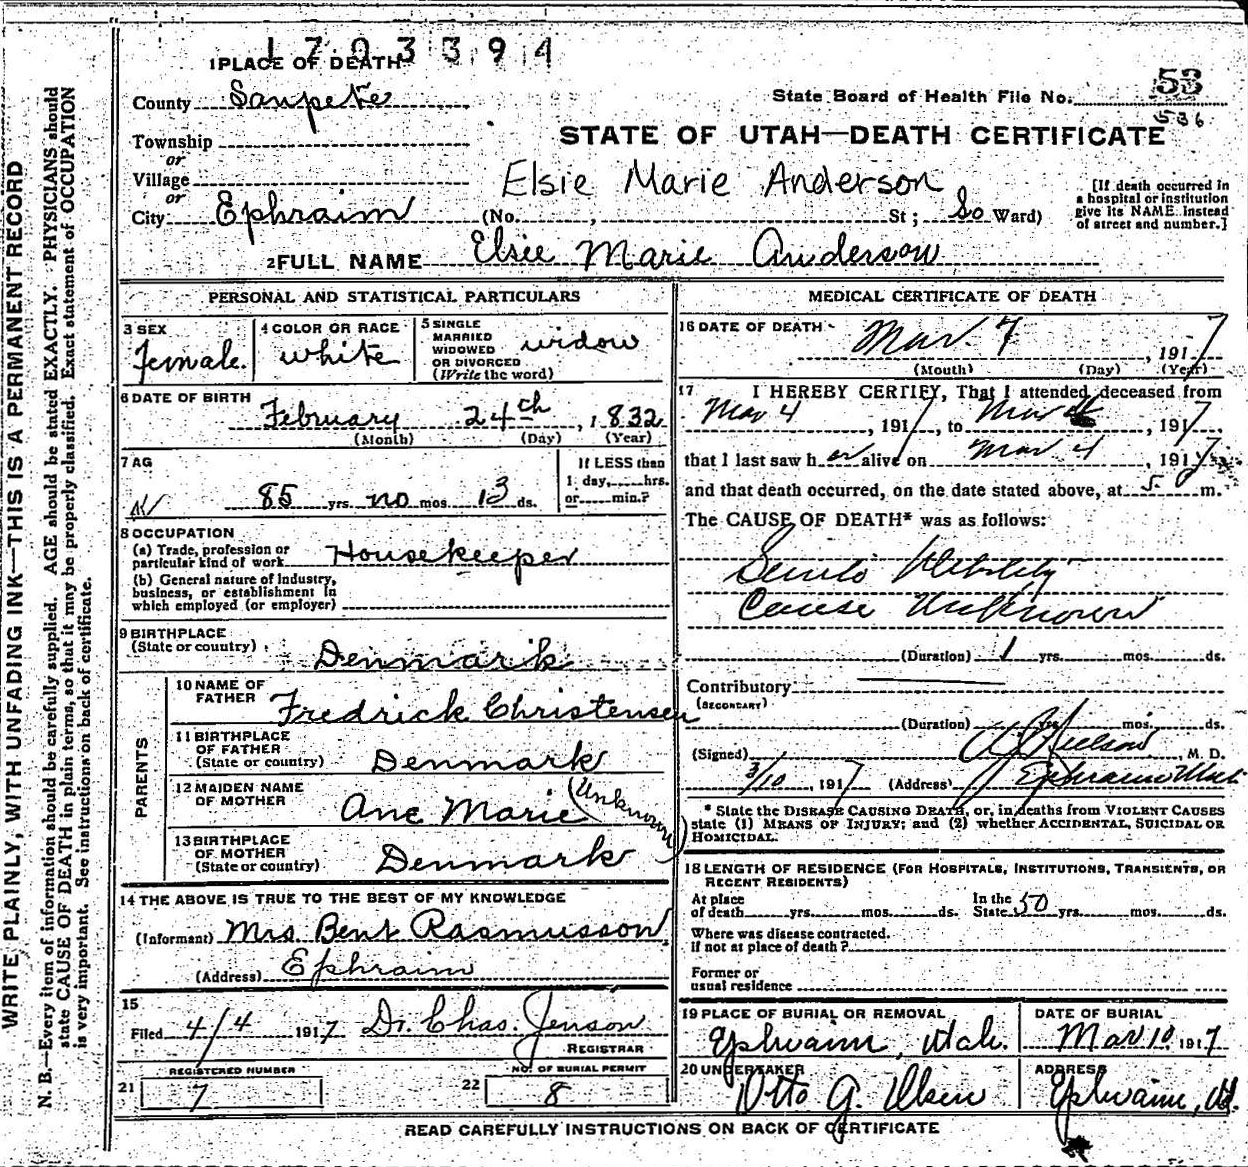 1703394
1 PLACE OF DEATH
County Sanpete
State Board of Health File No. 53
536
STATE OF UTAH—DEATH CERTIFICATE
Township
or
Village
or
City Ephraim (No. , St ; So Ward)
Elsie Marie Anderson
[If death occurred in
a hospital or institution
give its NAME instead
of street and number.]
2 FULL NAME Elsie Marie Anderson
WRITE PLAINLY, WITH UNFADING INK—THIS IS A PERMANENT RECORD
N. B.—Every item of information should be carefully supplied. AGE should be stated EXACTLY. PHYSICIANS should
state CAUSE OF DEATH in plain terms, so that it may be properly classified. Exact statement of OCCUPATION
is very important. See instructions on back of certificate.
PERSONAL AND STATISTICAL PARTICULARS
3 SEX
female.
4 COLOR OR RACE
white
5 SINGLE
MARRIED
WIDOWED
OR DIVORCED
(Write the word)
widow
6 DATE OF BIRTH
February 24th, 1832
(Month) (Day) (Year)
7 AG
85 yrs. no mos. 13 ds.
If LESS than
1 day, hrs.
or min.?
8 OCCUPATION
(a) Trade, profession or
particular kind of work Housekeeper
(b) General nature of industry,
business, or establishment in
which employed (or employer)
9 BIRTHPLACE
(State or country)
Denmark
PARENTS
10 NAME OF
FATHER
Fredrick Christensen
11 BIRTHPLACE
OF FATHER
(State or country) Denmark
12 MAIDEN NAME
OF MOTHER
Ane Marie (Unknown)
13 BIRTHPLACE
OF MOTHER
(State or country) Denmark
14 THE ABOVE IS TRUE TO THE BEST OF MY KNOWLEDGE
(Informant) Mrs Bent Rasmusson
(Address) Ephraim
15
Filed 4/4 1917 Dr. Chas. Jenson
REGISTRAR
REGISTERED NUMBER
21 7
NO. OF BURIAL PERMIT
22 8
MEDICAL CERTIFICATE OF DEATH
16 DATE OF DEATH
Mar. 7 1917
(Month) (Day) (Year)
17 I HEREBY CERTIFY, That I attended deceased from
Mar 4, 1917, to Mar, 1917,
that I last saw her alive on Mar. 4, 1917,
and that death occurred, on the date stated above, at 5 m.
The CAUSE OF DEATH* was as follows:
Senile Debility
Cause Unknown
(Duration) 1 yrs. mos. ds.
Contributory
(SECONDARY)
(Duration) yrs. mos. ds.
(Signed) Nielson, M. D.
3/10, 1917 (Address) Ephraim Utah
* State the DISEASE CAUSING DEATH, or, in deaths from VIOLENT CAUSES
state (1) MEANS OF INJURY; and (2) whether ACCIDENTAL, SUICIDAL OR
HOMICIDAL.
18 LENGTH OF RESIDENCE (FOR HOSPITALS, INSTITUTIONS, TRANSIENTS, OR
RECENT RESIDENTS)
At place
of death yrs. mos. ds.
In the
State 50 yrs. mos. ds.
Where was disease contracted.
if not at place of death?
Former or
usual residence
19 PLACE OF BURIAL OR REMOVAL
Ephraim, Utah.
DATE OF BURIAL
Mar 10 1917
20 UNDERTAKER
Otto G. Olsen
ADDRESS
Ephraim, Ut.
READ CAREFULLY INSTRUCTIONS ON BACK OF CERTIFICATE